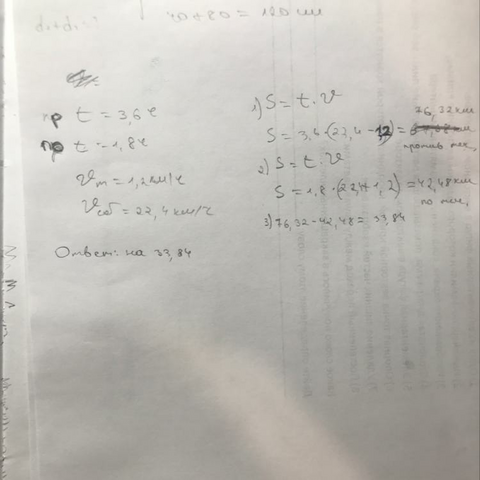 d₁+d₁=?
40+80=120 см
пр t = 3,6 ч
по t = 1,8 ч
Vт = 1,2 км/ч
Vсоб = 22,4 км/ч
Ответ: на 33,84
1) S = t · V
S = 3,4 · (22,4 - 1,2) = 76,32 км
против теч,
2) S = t · V
S = 1,8 · (22,4+1,2) = 42,48 км
по теч,
3) 76,32 - 42,48 = 33,84